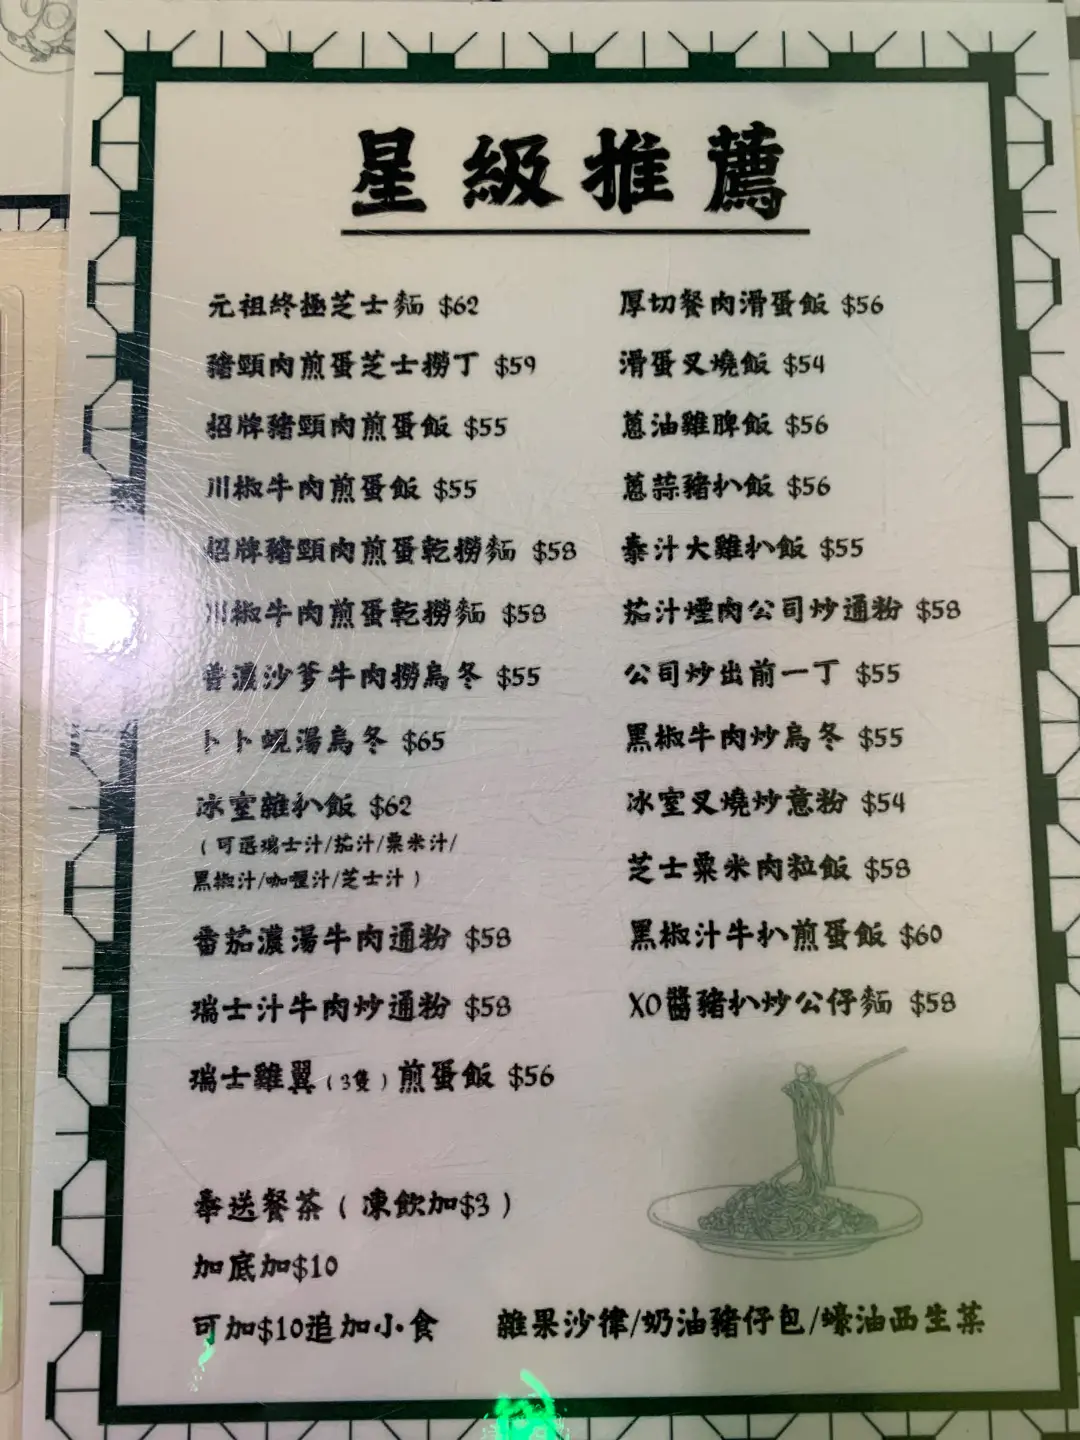 星級推薦
元祖終極芝士麵 $62
豬頸肉煎蛋芝士撈丁 $59
招牌豬頸肉煎蛋飯 $55
川椒牛肉煎蛋飯 $55
招牌豬頸肉煎蛋乾撈麵 $58
川椒牛肉煎蛋乾撈麵 $58
普濃沙爹牛肉撈烏冬 $55
卜卜蜆湯烏冬 $65
冰室雜扒飯 $62
（可選瑞士汁/茄汁/粟米汁/
黑椒汁/咖喱汁/芝士汁）
番茄濃湯牛肉通粉 $58
瑞士汁牛肉炒通粉 $58
瑞士雞翼（3隻）煎蛋飯 $56
厚切餐肉滑蛋飯 $56
滑蛋叉燒飯 $54
蔥油雞脾飯 $56
蔥蒜豬扒飯 $56
泰汁大雞扒飯 $55
茄汁煙肉公司炒通粉 $58
公司炒出前一丁 $55
黑椒牛肉炒烏冬 $55
冰室叉燒炒意粉 $54
芝士粟米肉粒飯 $58
黑椒汁牛扒煎蛋飯 $60
XO醬豬扒炒公仔麵 $58
奉送餐茶（凍飲加$3）
加底加$10
可加$10追加小食 雜果沙律/奶油豬仔包/蠔油西生菜